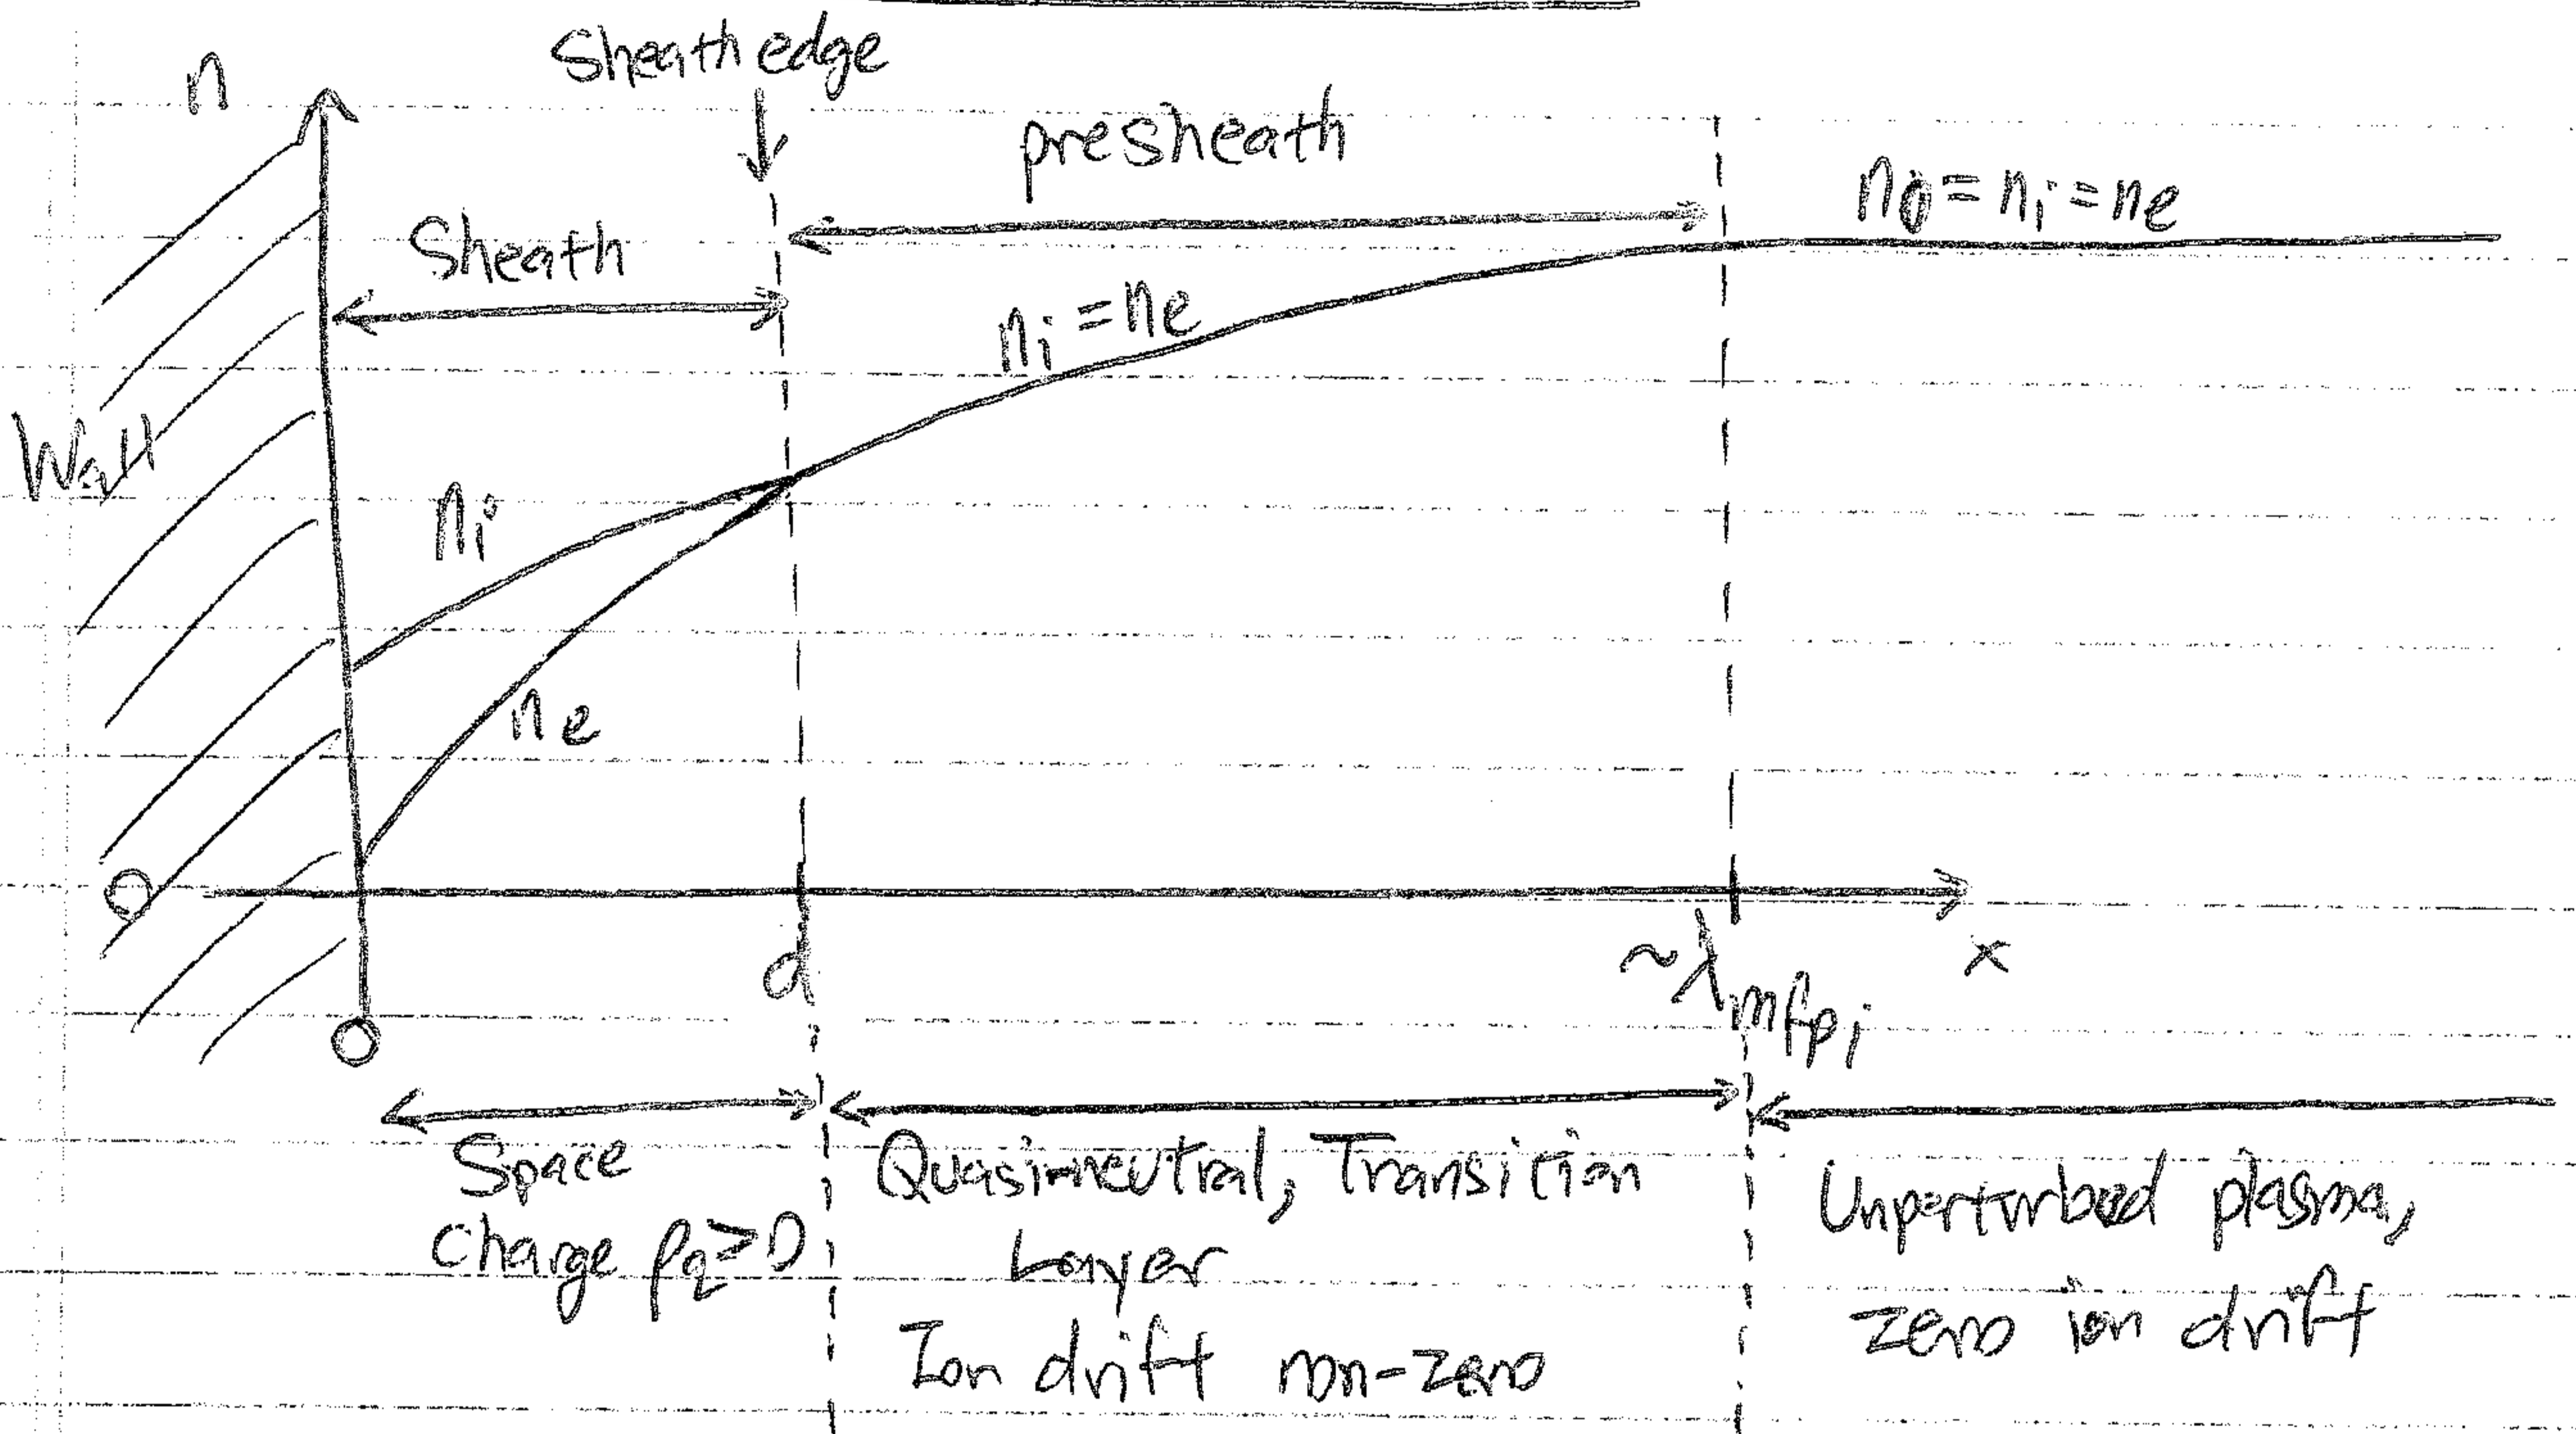 n
Sheath edge
presheath
n₀ = nᵢ = nₑ
Sheath
nᵢ = nₑ
Wall
nᵢ
nₑ
O
d
~λmfpᵢ
x
O
Space
Charge ρq ≥ 0
Quasi-neutral, Transition
Layer
Ion drift non-zero
Unperturbed plasma,
zero ion drift